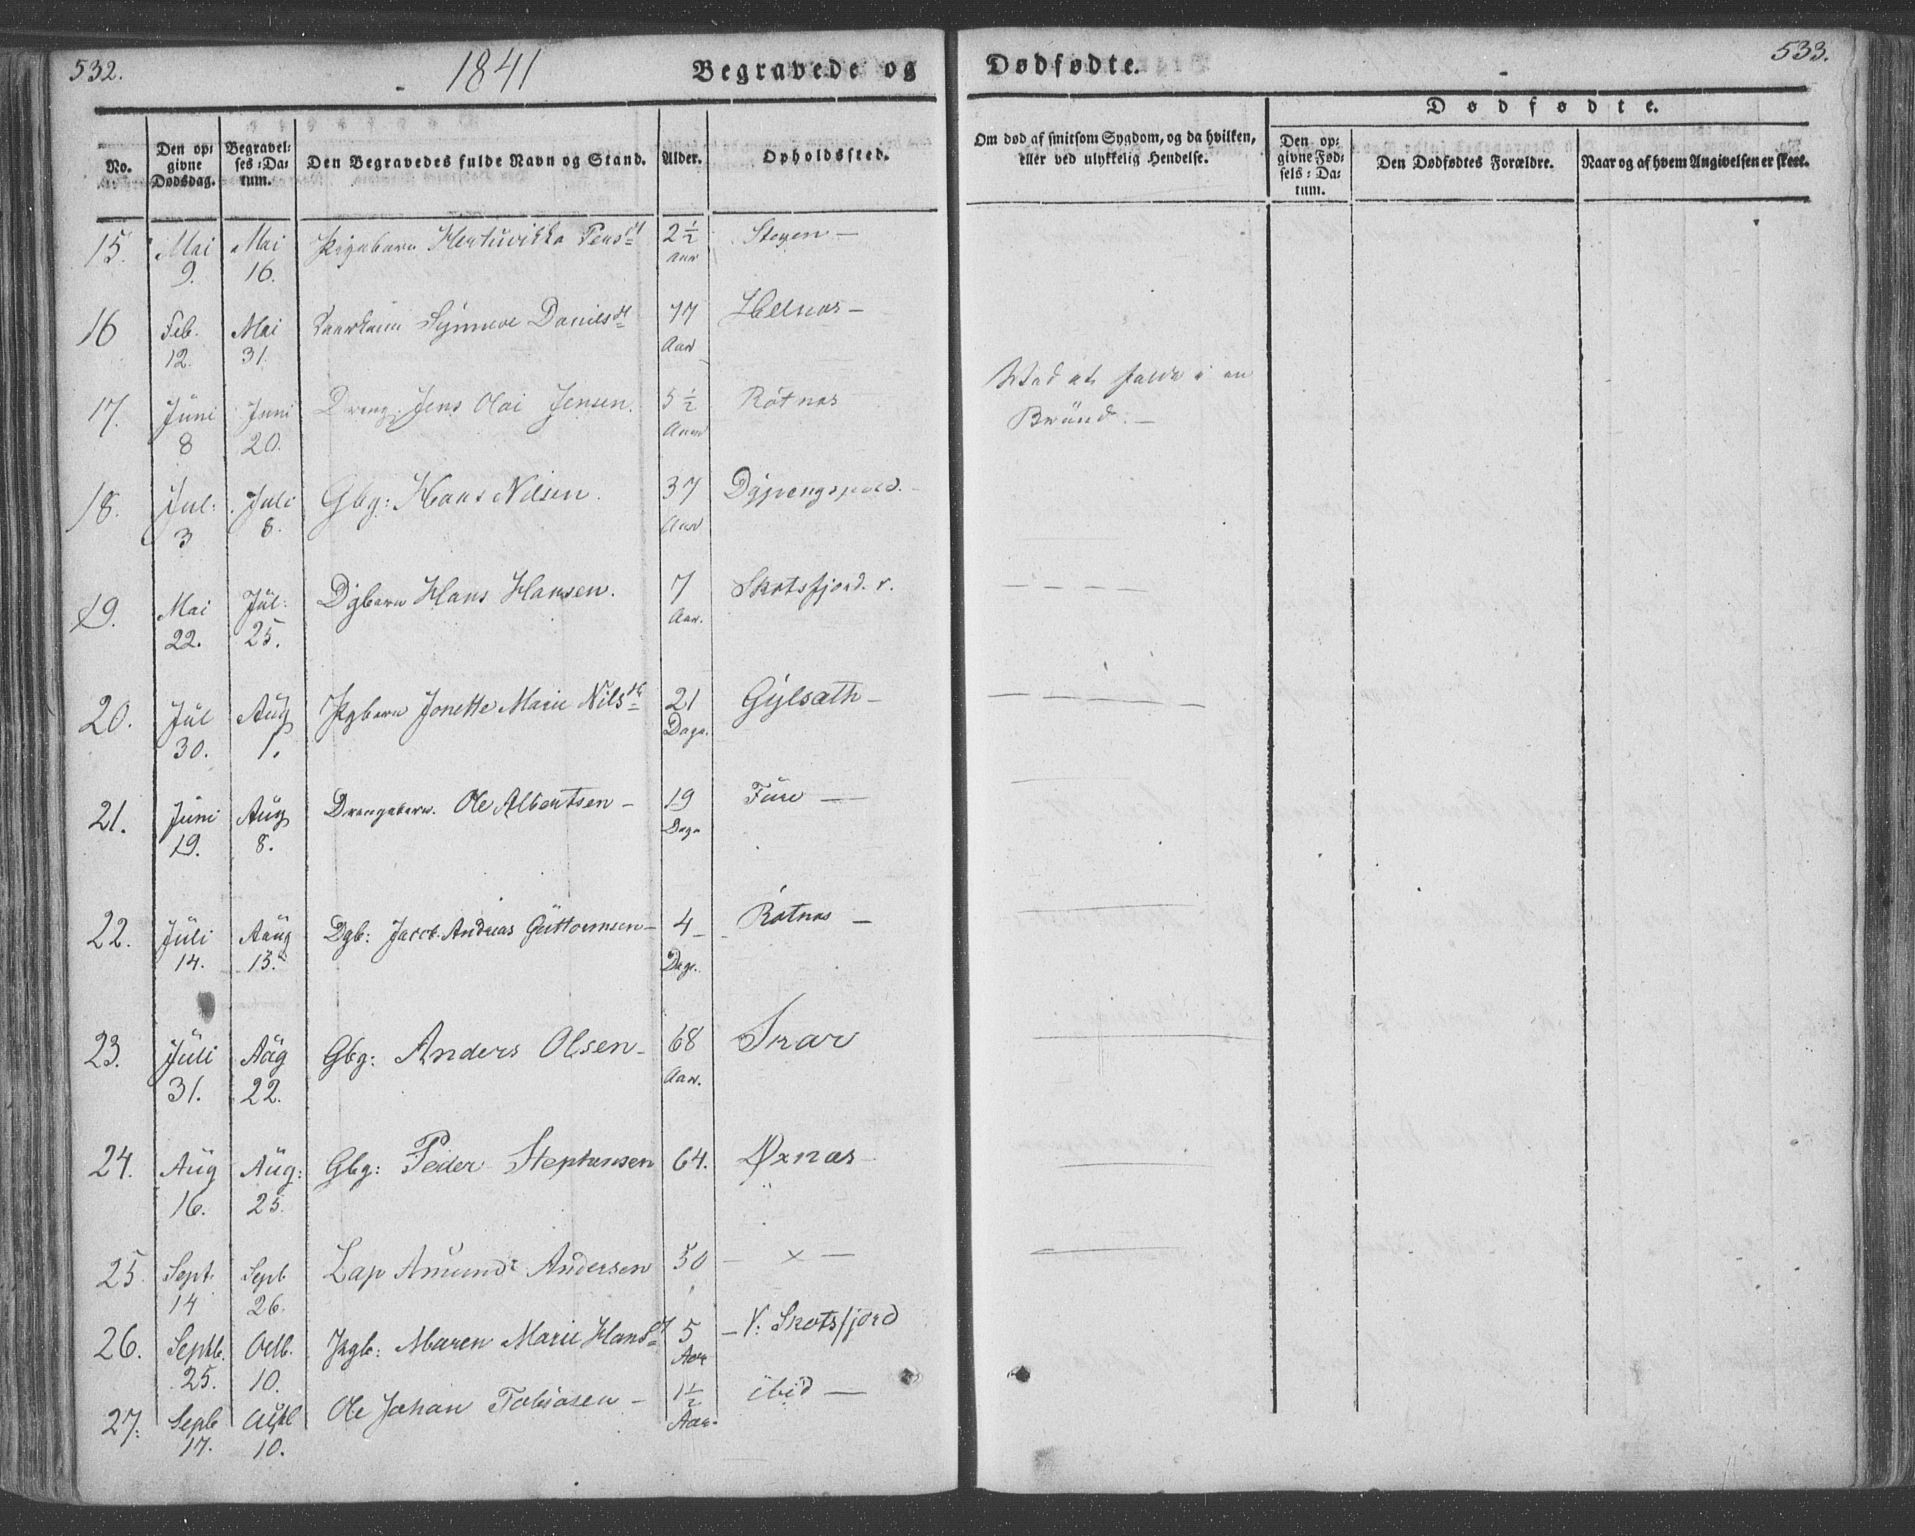 532.
1841
Begravede og
Dødfødte.
533.
No.
Den op-
givne
Dødsdag.
Begravel-
ses-Da-
tum.
Den Begravedes fulde Navn og Stand.
Alder.
Opholdssted.
Om død af smitsom Sygdom, og da hvilken,
eller ved ulykkelig Hendelse.
Dødfødte.
Den op-
givne Fød-
sels-Da-
tum.
Den Dødfødtes Forældre.
Naar og af hvem Angivelsen er skeet.
15. Mai 9. Mai 16. Pigebarn 2½ Aar Stegen —
16 Feb. 12. Mai 31. Synneve Danielsdt 77 Aar Helnæs —
17. Juni 8 Juni 20. Dreng. Jens Olai Jensen. 5½ Aar Røtnæs
Ved at falde i en
Bründ. —
18. Jul: 3 Juli 8. Gbg: Hans Nilsen. 37 Aar
19. Mai 22. Jül: 25. Dgbarn Hans Hansen. 7 Aar. Skotsfjord. v.
20. Jül 30. Aug 1. Pgbarn Jonette Marie Nilsdt 21 Dage. Gylsæth —
21. Juni 19. Aug 8. Drengebarn. Ole Albertsen — 19 Dage Füre —
22. Jüli 14. Aaug 15. Dgb: Jacob Andreas Güttormsen — 4 Dage. Røtnæs —
23. Jüli 31. Aüg 22. Gbg: Anders Olsen — 68 Aar. Skar
24. Aüg 16. Aüg: 25. Gbg: Peder Stephensen 64. Øxnæs
25. Sept. 14 Sept 26. Lap Amund Andersen 50 — x —
26. Septb. 25. Octb. 10. Pgb: Maren Marie Hansdt 5 Aar — V. Skotsfjord
27. Septb 17. 10. Ole Johan Tobiasen — 1½ Aar. ibid —